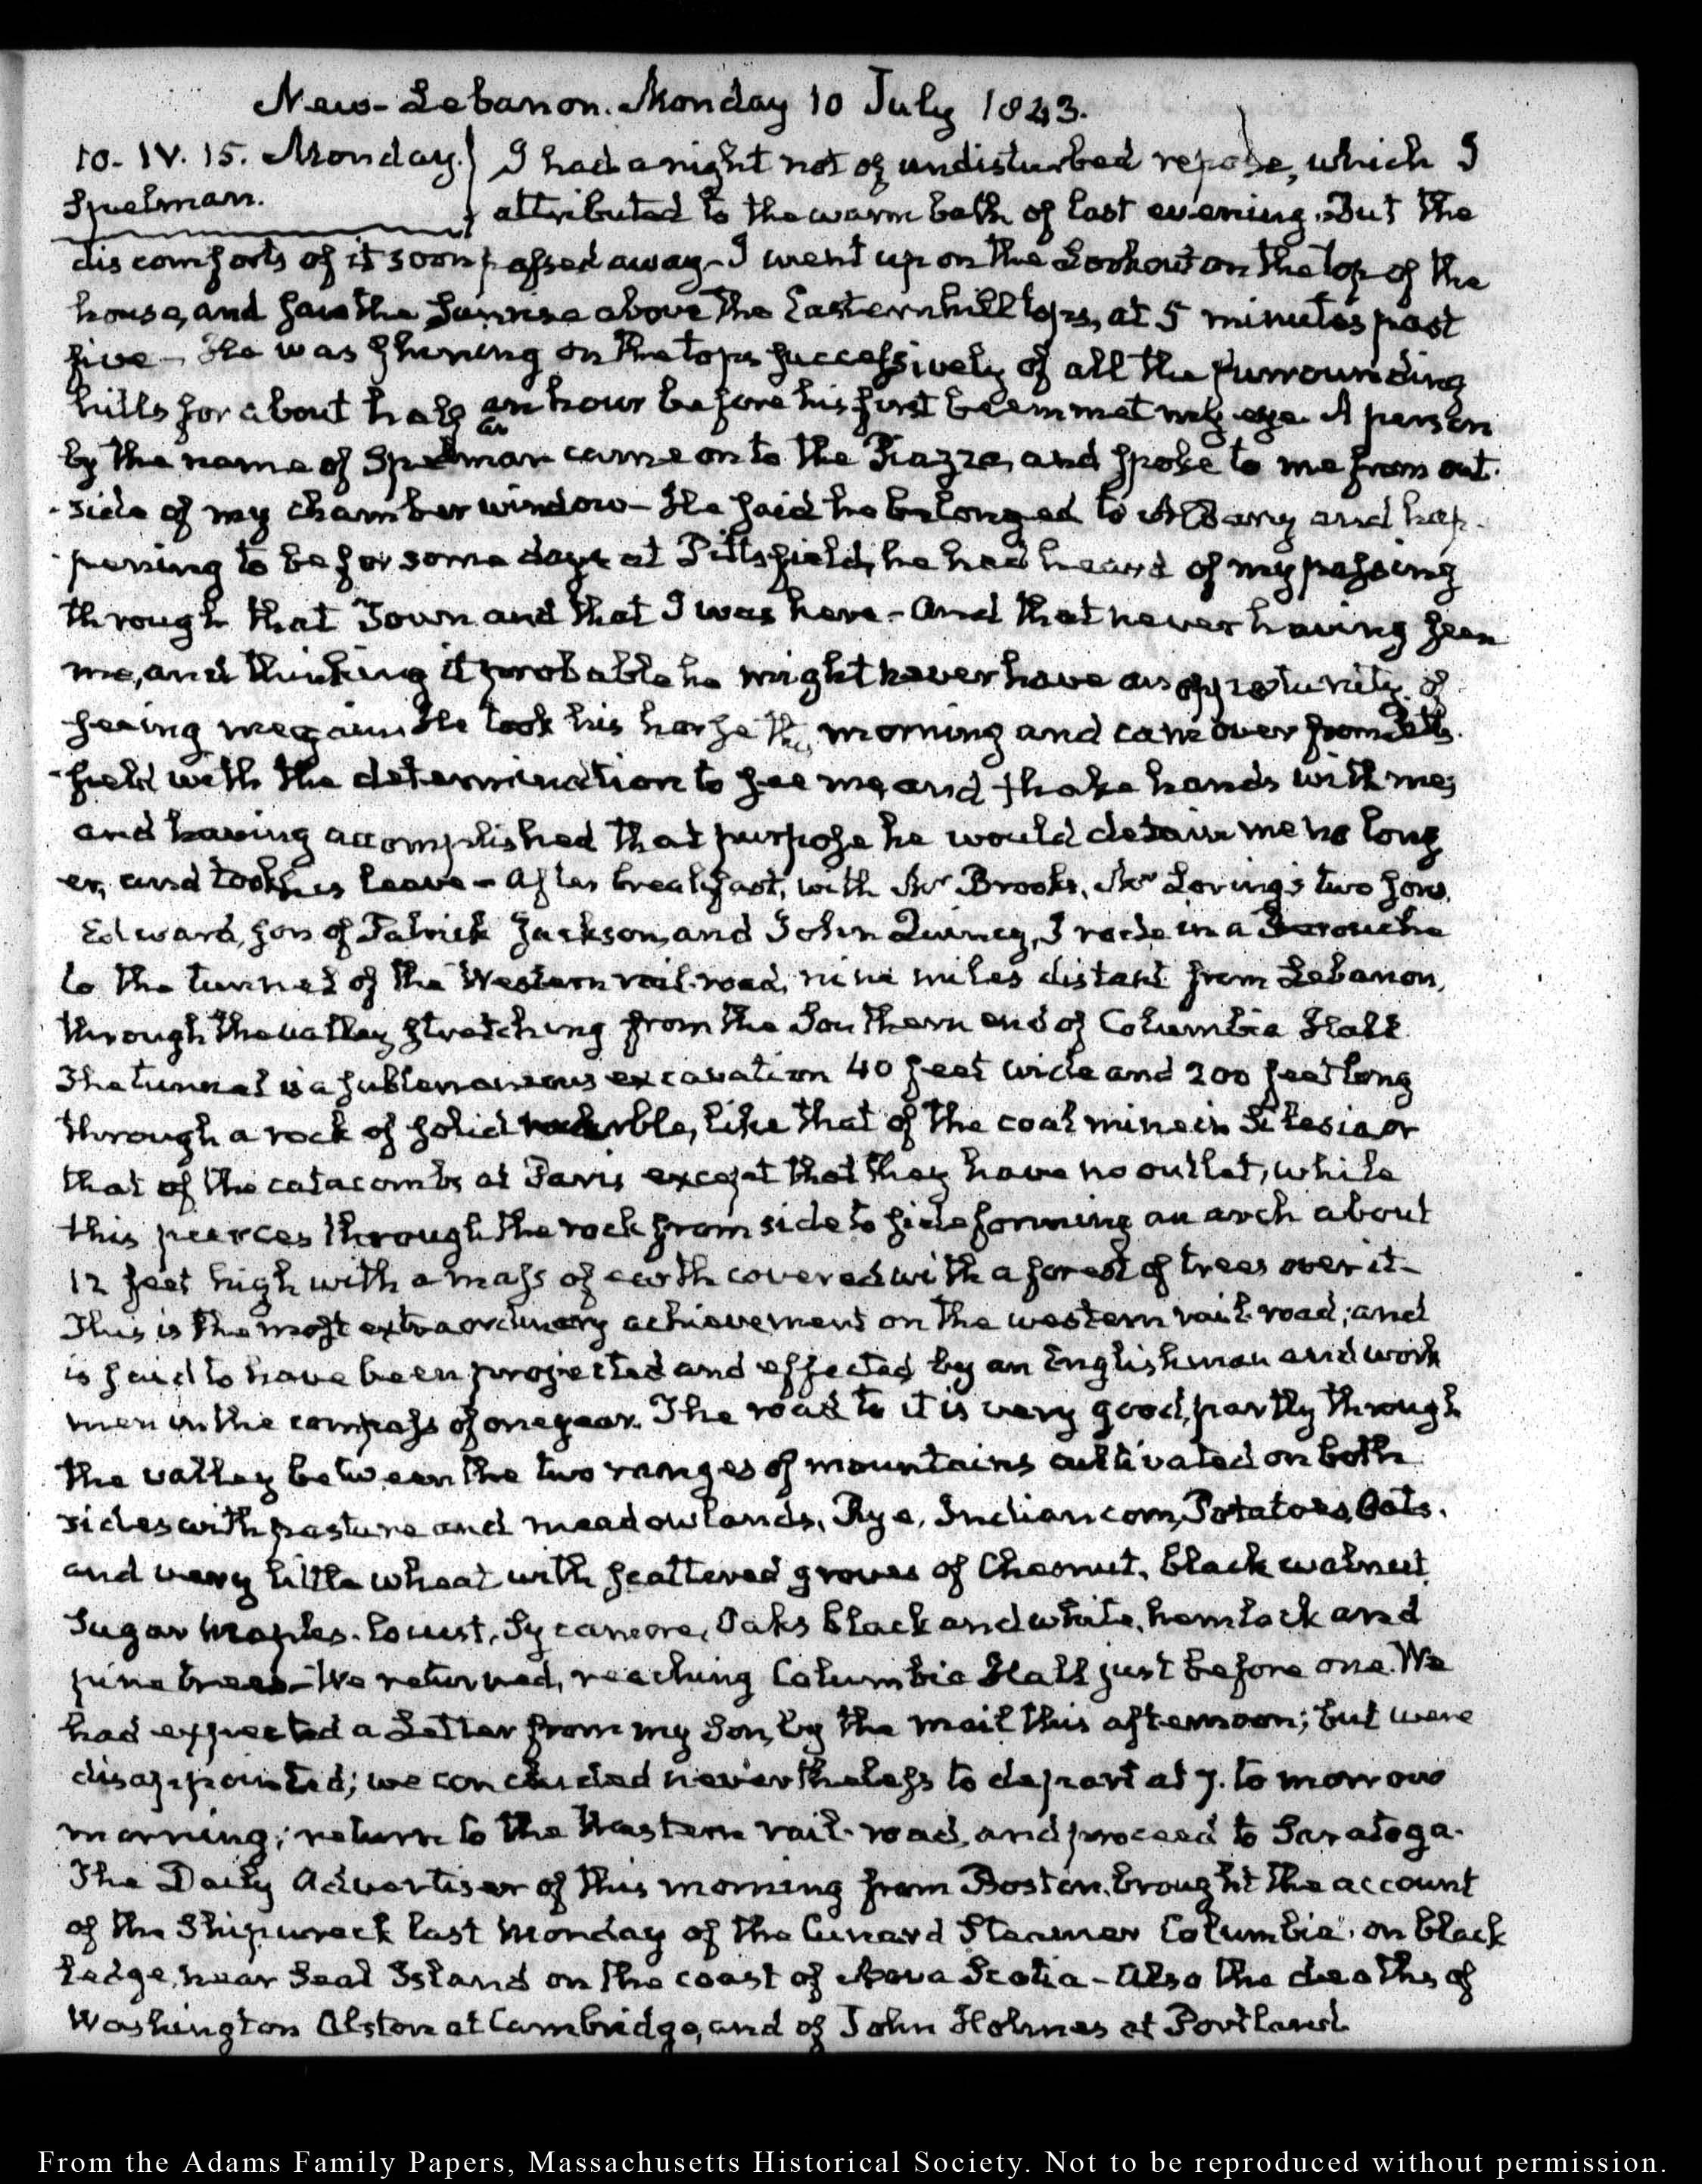 New-Lebanon. Monday 10 July 1843.
10. IV. 15. Monday. I had a night not of undisturbed repose, which I
Spelman. attributed to the warm bath of last evening. But the
discomforts of it soon passed away - I went up on the Lookout on the top of the
house, and saw the Sun rise above the Eastern hill tops, at 5 minutes past
five - He was shining on the tops successively of all the surrounding
hills for about half an hour before his first beam met my eye. A person
by the name of Spelman came on to the Piazza, and spoke to me from out-
-side of my chamber window - He said he belonged to Albany and hap-
-pening to be for some days at Pittsfield, he had heard of my passing
through that Town and that I was here - And that never having seen
me, and thinking it probable he might never have an opportunity of
seeing me again He took his horse this morning and came over from Pitts-
-field with the determination to see me, and shake hands with me;
and having accomplished that purpose he would detain me no long
er, and took his leave - After breakfast, with Mr Brooks, Mr Loring's two sons,
Edward, son of Patrick Jackson, and John Quincy, I rode in a Barouche
to the tunnel of the Western rail-road, nine miles distant from Lebanon,
through the valley stretching from the Southern end of Columbia Hall.
The tunnel is a subterraneous excavation 40 feet wide and 200 feet long
through a rock of solid marble, like that of the coal mine in Silesia, or
that of the catacombs at Paris except that they have no outlet, while
this pierces through the rock from side to side forming an arch about
12 feet high with a mass of earth covered with a forest of trees over it -
This is the most extraordinary achievement on the western rail-road; and
is said to have been projected and effected by an Englishman and work
men in the compass of one year. The road to it is very good, partly through
the valley between the two ranges of mountains cultivated on both
sides with pasture and meadow lands, Rye, Indian corn, Potatoes, Oats,
and very little wheat with scattered groves of Chesnut, black walnut,
Sugar Maples, locust, Sycamore, Oaks black and white, hemlock and
pine trees - We returned, reaching Columbia Hall just before one. We
had expected a Letter from my Son, by the mail this afternoon; but were
disappointed; we concluded nevertheless to depart at 7. to morrow
morning; return to the Western rail-road, and proceed to Saratoga.
The Daily Advertiser of this morning from Boston, brought the account
of the Shipwreck last Monday of the Cunard Steamer Columbia, on black
Ledge, near Seal Island on the coast of Nova Scotia - Also the deaths of
Washington Alston at Cambridge, and of John Holmes at Portland
From the Adams Family Papers, Massachusetts Historical Society. Not to be reproduced without permission.